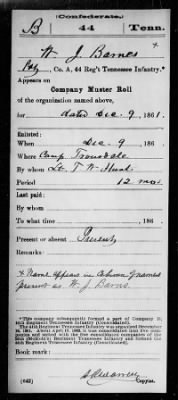 (Confederate.)
B 44 Tenn.
W. J. Barnes
Pvt, Co. A, 44 Reg't Tennessee Infantry.*
Appears on
Company Muster Roll
of the organization named above,
for dated Dec. 9, 1861.
Enlisted:
When Dec. 9, 186
Where Camp Trousdale
By whom Lt. T. W.
Period 12 mos
Last paid:
By whom
To what time , 186
Present or absent Present
Remarks:
+ Name appears in Column Names
present as W. J. Barns.
*This company subsequently formed a part of Company
Regiment Tennessee Infantry (Consolidated).
The 44th Regiment Tennessee Infantry was organized December
Tennessee Infantry and formed the
44th Regiment Tennessee Infantry (Consolidated).
Book mark:
(642)
Copyist.